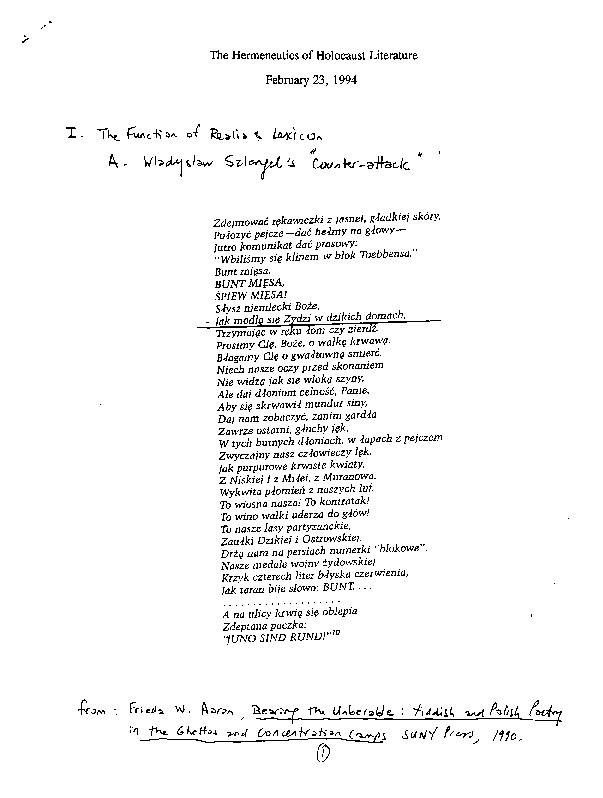 The Hermeneutics of Holocaust Literature
February 23, 1994
I. The Function of Realia & Lexicon
A. Wladyslaw Szlengel's "Counter-attack"
Zdejmować rękawiczki z jasnej, gładkiej skóry,
Położyć pejcze—dać hełmy na głowy—
Jutro komunikat dać prasowy:
"Wbiliśmy się klinem w blok Toebbensa."
Bunt mięsa,
BUNT MIĘSA,
ŚPIEW MIĘSA!
Słysz niemiecki Boże,
Jak modlą się Żydzi w dzikich domach,
Trzymając w ręku łom czy żerdź.
Prosimy Cię, Boże, o walkę krwawą,
Błagamy Cię o gwałtowną śmierć.
Niech nasze oczy przed skonaniem
Nie widzą jak się wloką szyny,
Ale daj dłoniom celność, Panie,
Aby się skrwawił mundur siny,
Daj nam zobaczyć, zanim gardła
Zawrze ostatni, głuchy jęk,
W tych butnych dłoniach, w łapach z pejczem
Zwyczajny nasz człowieczy lęk.
Jak purpurowe krwiste kwiaty,
Z Niskiej i z Miłej, z Muranowa,
Wykwita płomień z naszych luf.
To wiosna nasza! To kontratak!
To wino walki uderza do głów!
To nasze lasy partyzanckie,
Zaułki Dzikiej i Ostrowskiej.
Drżą nam na piersiach numerki "blokowe",
Nasze medale wojny żydowskiej
Krzyk czterech liter błyska czerwienią,
Jak taran bije słowo: BUNT. . . .
. . . . . . . . . . . . . . . . . . . .
A na ulicy krwią się oblepia
Zdeptana paczka:
"JUNO SIND RUND!"¹⁰
from: Frieda W. Aaron, Bearing the Unbearable: Yiddish and Polish Poetry
in the Ghettos and Concentration Camps SUNY Press, 1990.
1